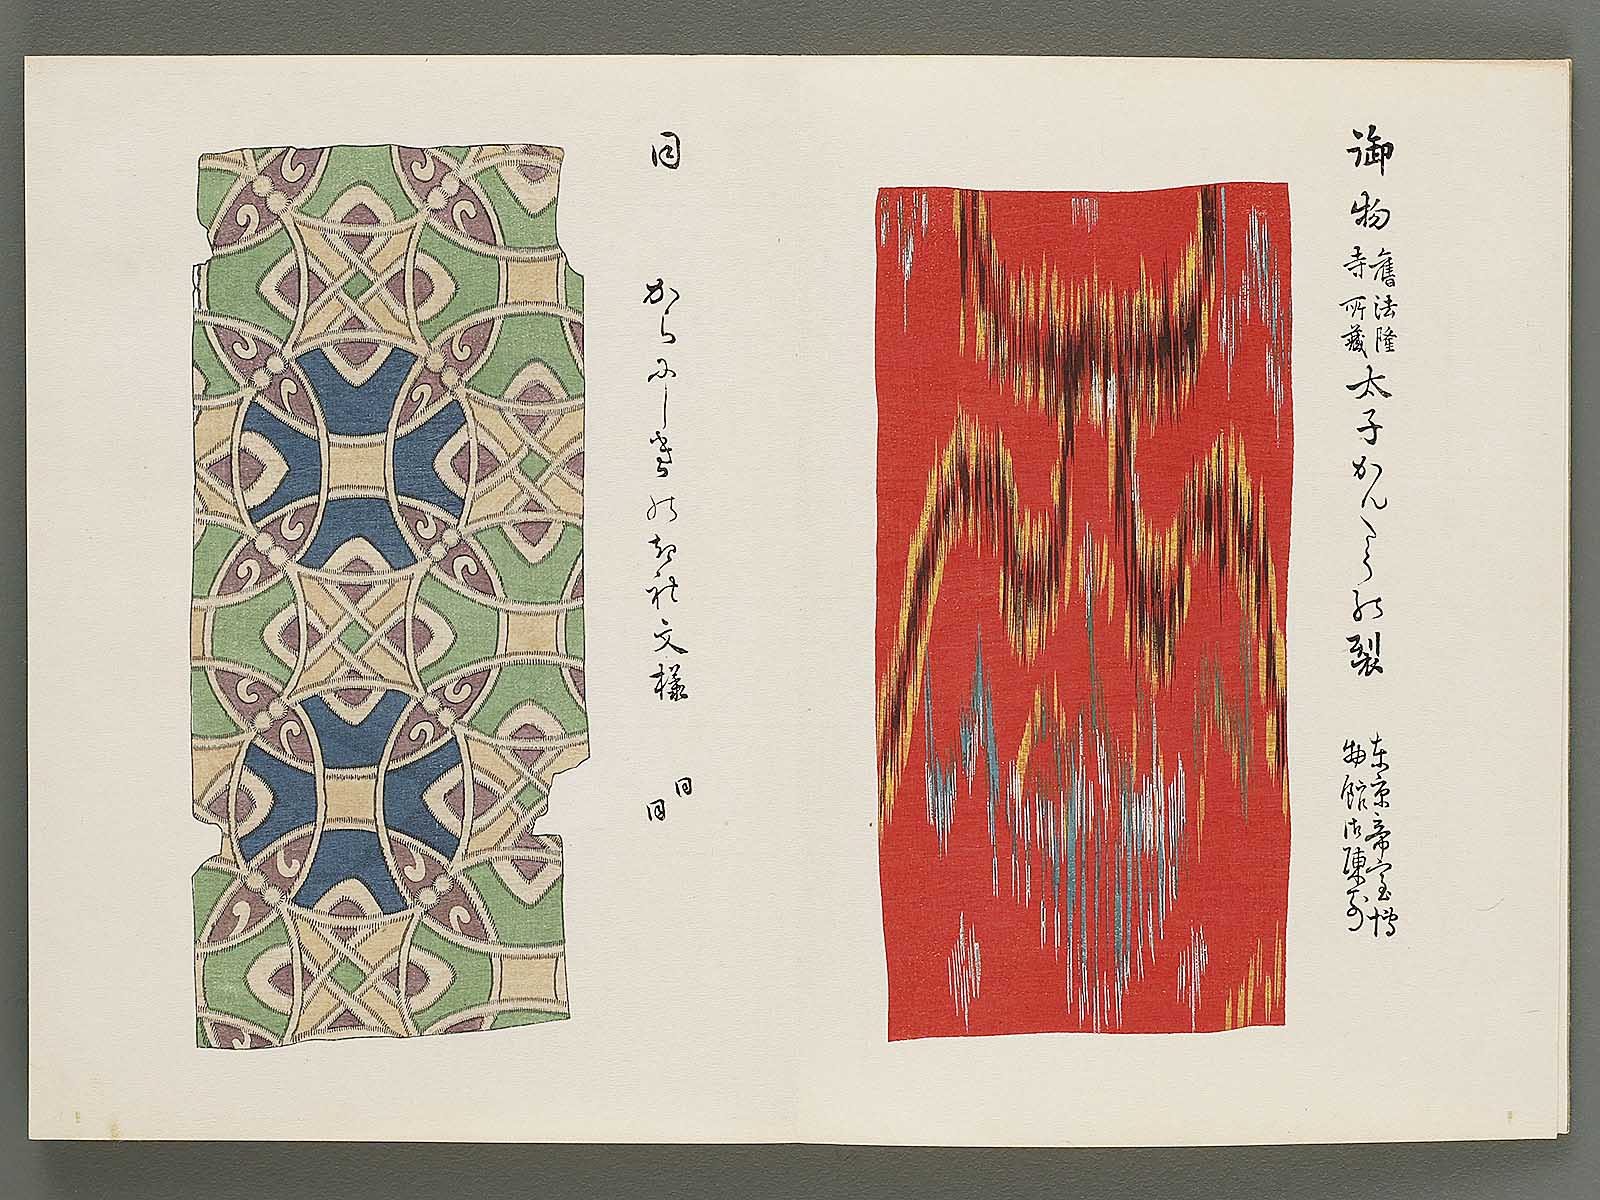 御物
舊法隆
寺所藏
太子かんたうの裂
東京帝室博
物館御陳列
同
からにしきのきれ文様
同
同